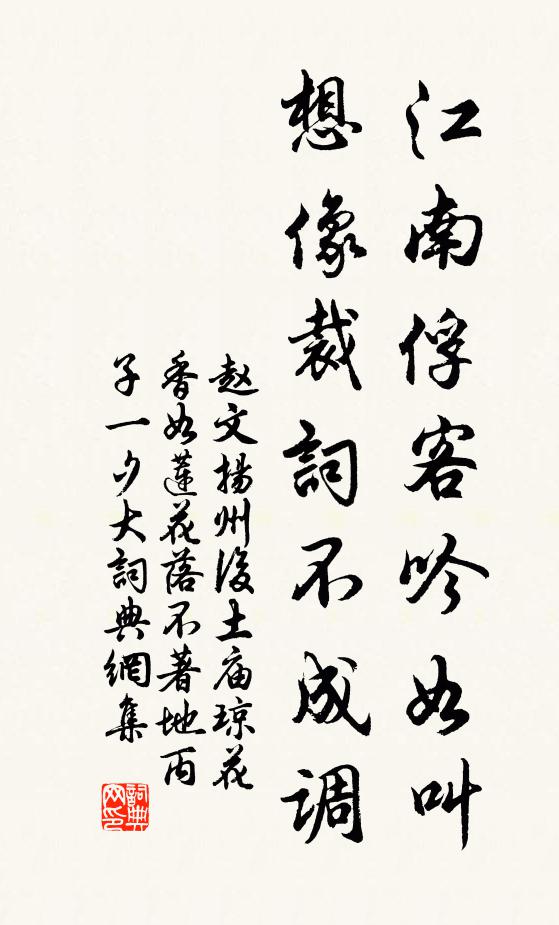 江南俘客吟如叫
想像裁詞不成調
赵文揚州後土庙琼花
香如蓮花落不著地丙
子一夕大詞典網集
詞典
网印